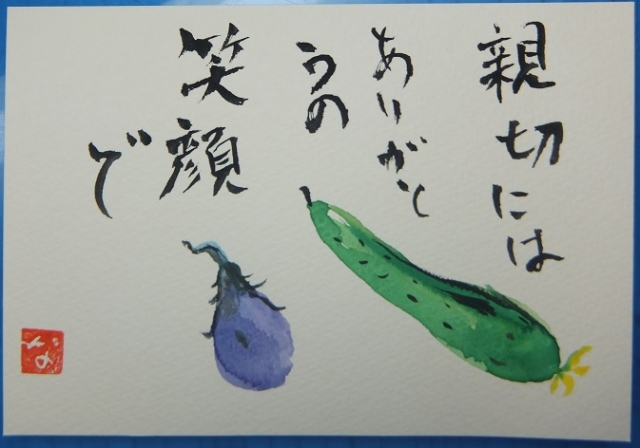 親切には
ありがと
うの
笑顔
で